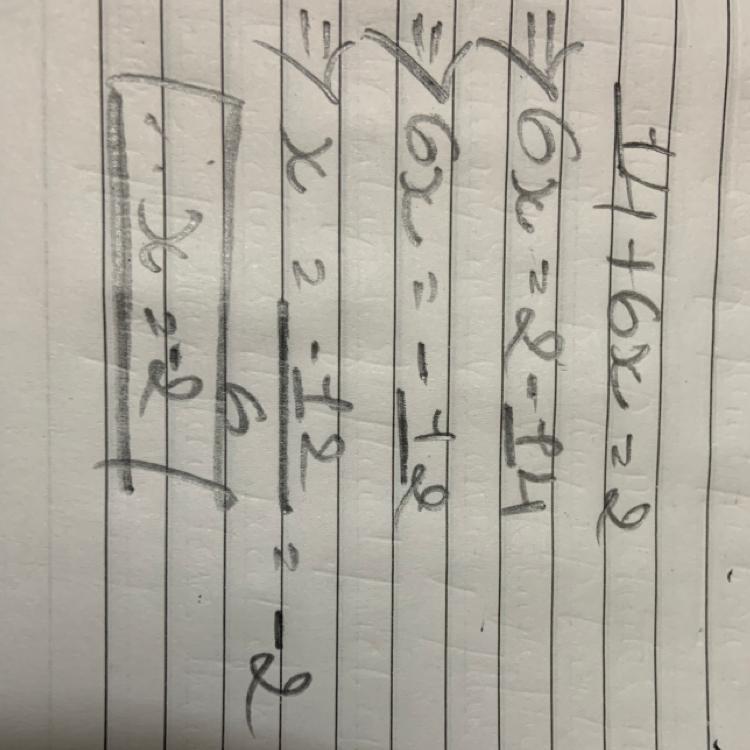 14+6x=2
⇒ 6x=2-14
⇒ 6x = -12
⇒ x = -12/6 = -2
∴ x = -2